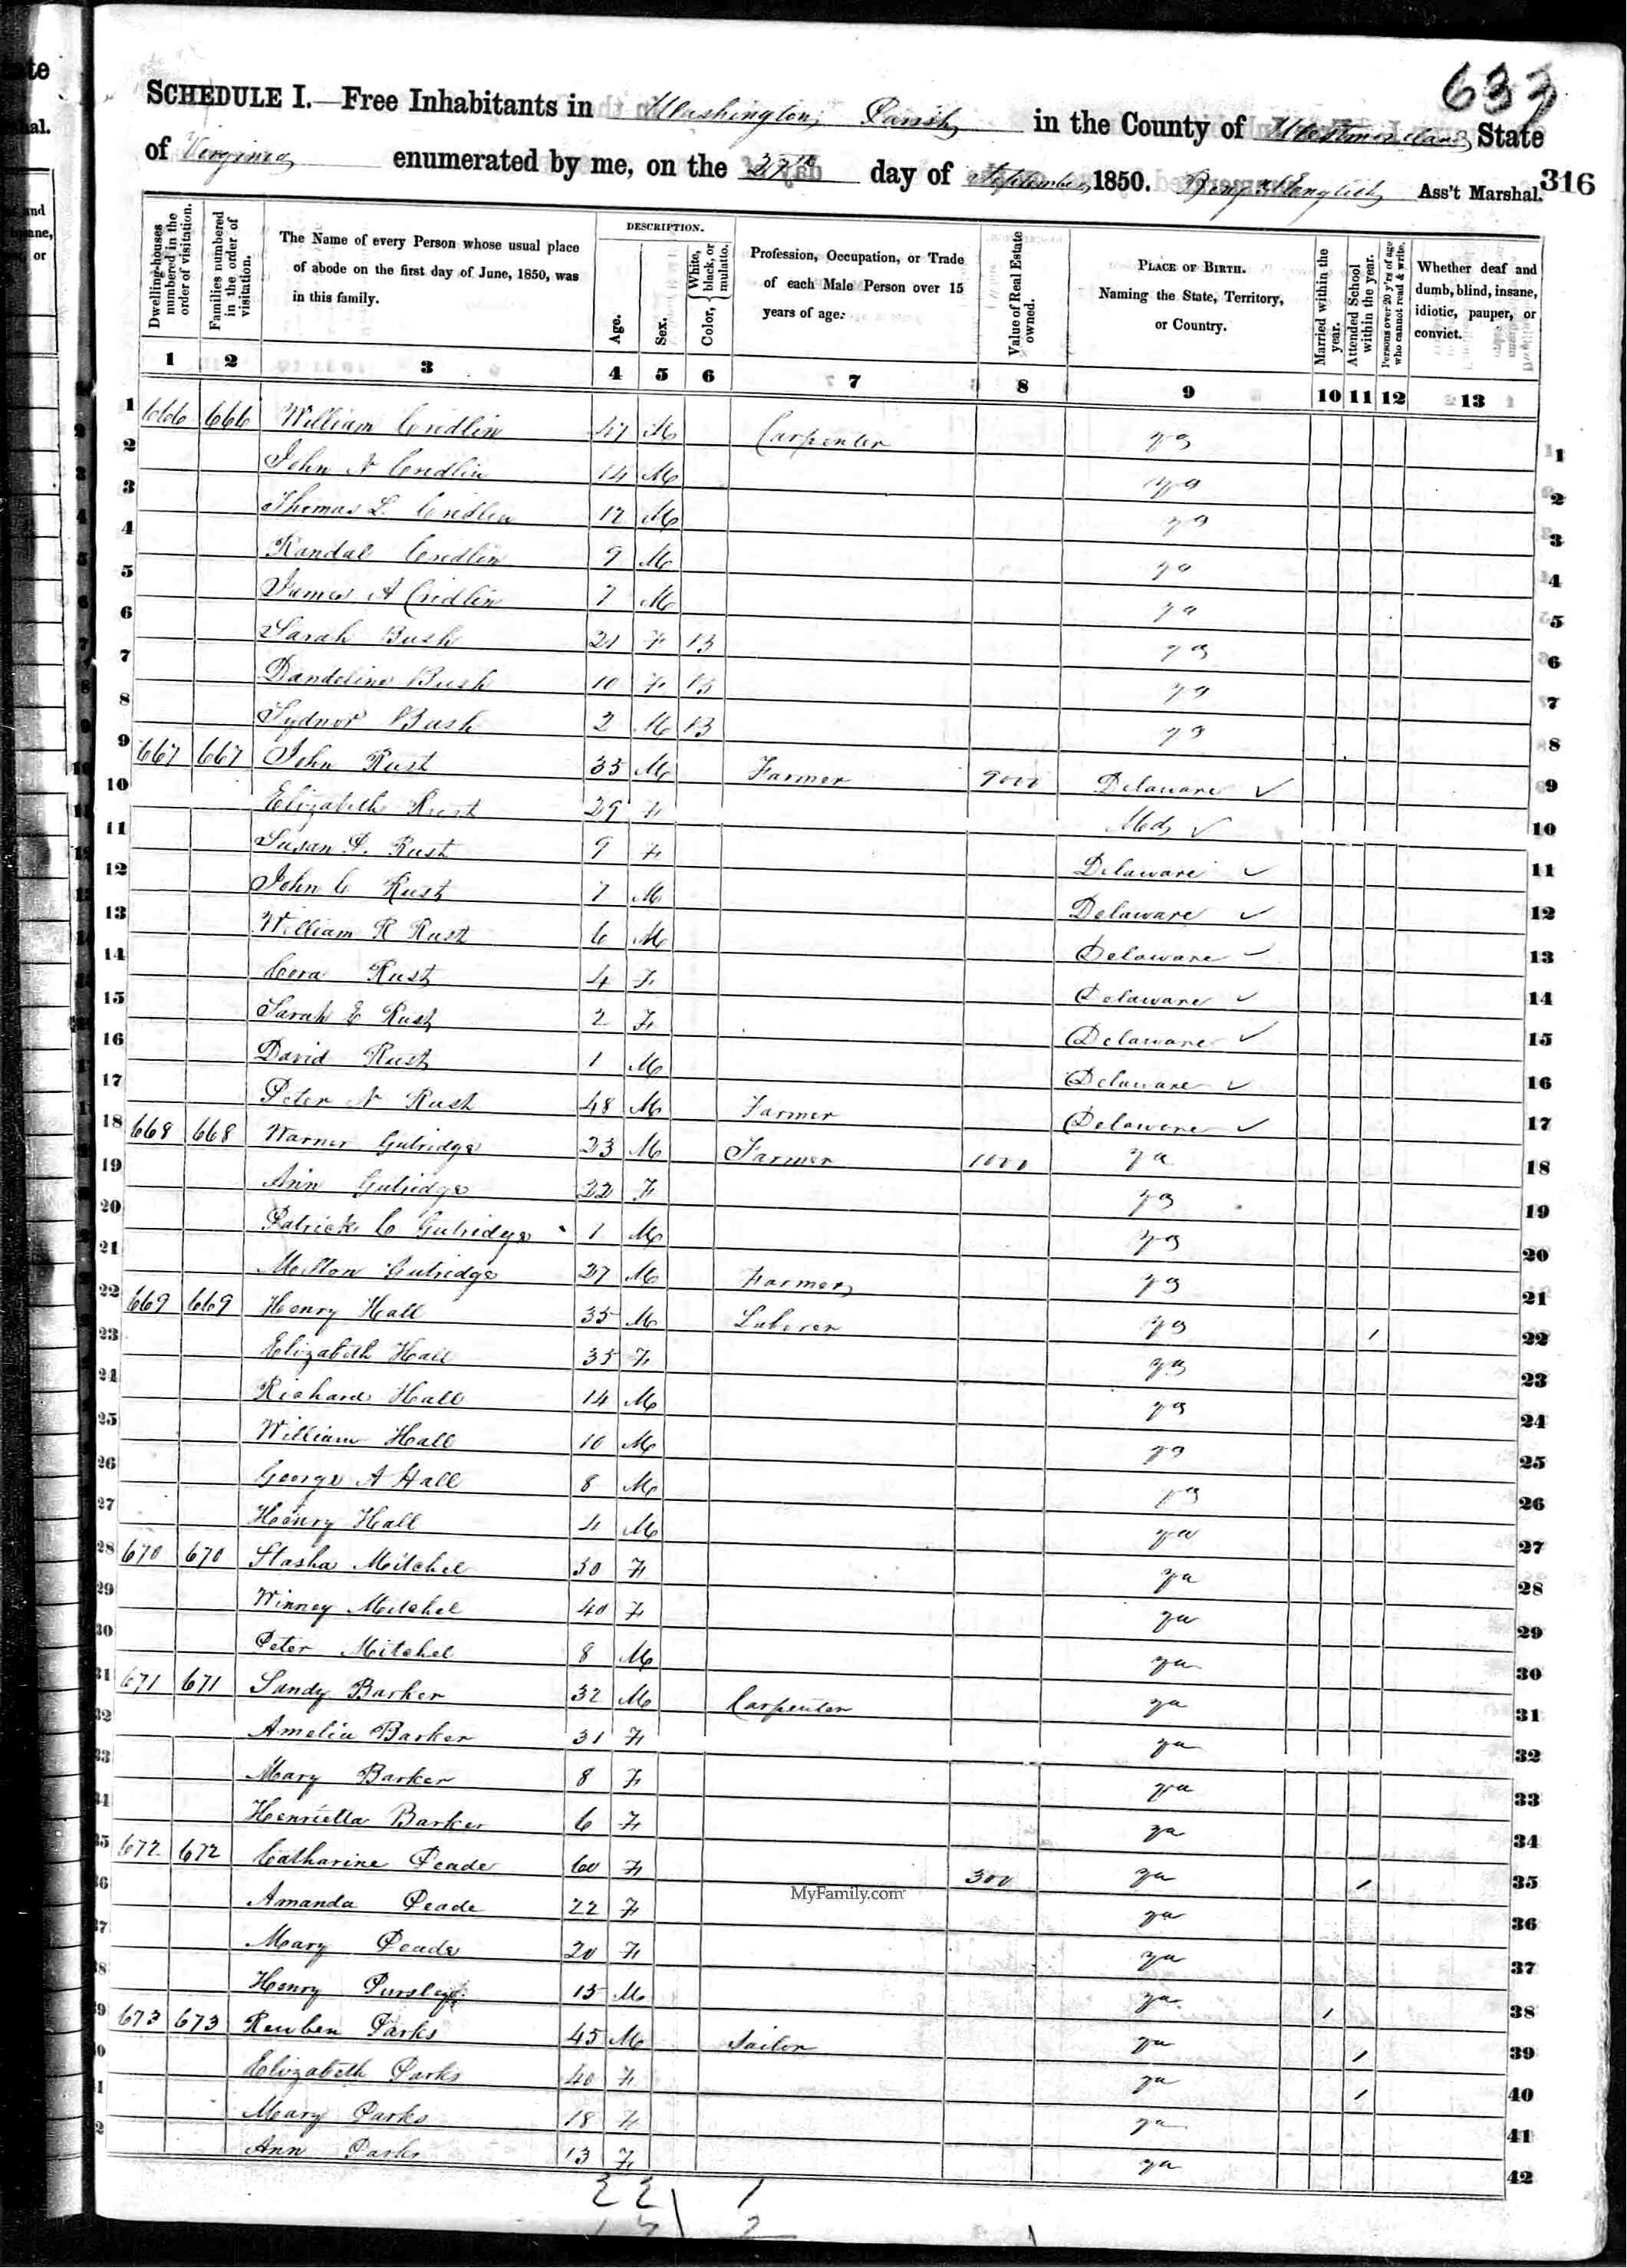 637
SCHEDULE I.—Free Inhabitants in Washington Parish in the County of Westmoreland State
of Virginia enumerated by me, on the 27th day of September 1850. Ass't Marshal. 316
Dwelling-houses numbered in the order of visitation.
Families numbered in the order of visitation.
The Name of every Person whose usual place of abode on the first day of June, 1850, was in this family.
DESCRIPTION.
Age.
Sex.
Color, { White, black, or mulatto.
Profession, Occupation, or Trade of each Male Person over 15 years of age.
Value of Real Estate owned.
PLACE OF BIRTH. Naming the State, Territory, or Country.
Married within the year.
Attended School within the year.
Persons over 20 y'rs of age who cannot read & write.
Whether deaf and dumb, blind, insane, idiotic, pauper, or convict.
1 2 3 4 5 6 7 8 9 10 11 12 13
1 666 666 William Credlin 47 M Carpenter Va 1
2 John N Credlin 14 M Va 2
3 Thomas L. Credlin 12 M Va 3
4 Randal Credlin 9 M Va 4
5 James A Credlin 7 M Va 5
6 Sarah Bush 21 F B Va 6
7 Dandeline Bush 10 F B Va 7
8 Sydnor Bush 2 M B Va 8
9 667 667 John Rust 35 M Farmer 9000 Delaware ✓ 9
10 Elizabeth Rust 29 F Md ✓ 10
11 Susan P. Rust 9 F Delaware ✓ 11
12 John C Rust 7 M Delaware ✓ 12
13 William R Rust 6 M Delaware ✓ 13
14 Cora Rust 4 F Delaware ✓ 14
15 Sarah E Rust 2 F Delaware ✓ 15
16 David Rust 1 M Delaware ✓ 16
17 Peter N Rust 48 M Farmer Delaware ✓ 17
18 668 668 Warner Gutridge 23 M Farmer 1000 Va 18
19 Ann Gutridge 22 F Va 19
20 Patrick C Gutridge 1 M Va 20
21 Melton Gutridge 27 M Farmer Va 21
22 669 669 Henry Hall 35 M Laborer Va / 22
23 Elizabeth Hall 35 F Va 23
24 Richard Hall 14 M Va 24
25 William Hall 10 M Va 25
26 George A Hall 8 M Va 26
27 Henry Hall 4 M Va 27
28 670 670 Stasha Mitchel 30 F Va 28
29 Winney Mitchel 40 F Va 29
30 Peter Mitchel 8 M Va 30
31 671 671 Sandy Barker 32 M Carpenter Va 31
32 Amelia Barker 31 F Va 32
33 Mary Barker 8 F Va 33
34 Henrietta Barker 6 F Va 34
35 672 672 Catharine Peade 60 F 300 Va / 35
36 Amanda Peade 22 F Va 36
37 Mary Peade 20 F Va 37
38 Henry Pursley 15 M Va / 38
39 673 673 Reuben Parks 45 M Sailor Va / 39
40 Elizabeth Parks 40 F Va / 40
41 Mary Parks 18 F Va 41
42 Ann Parks 13 F Va 42
MyFamily.com
22 1
2